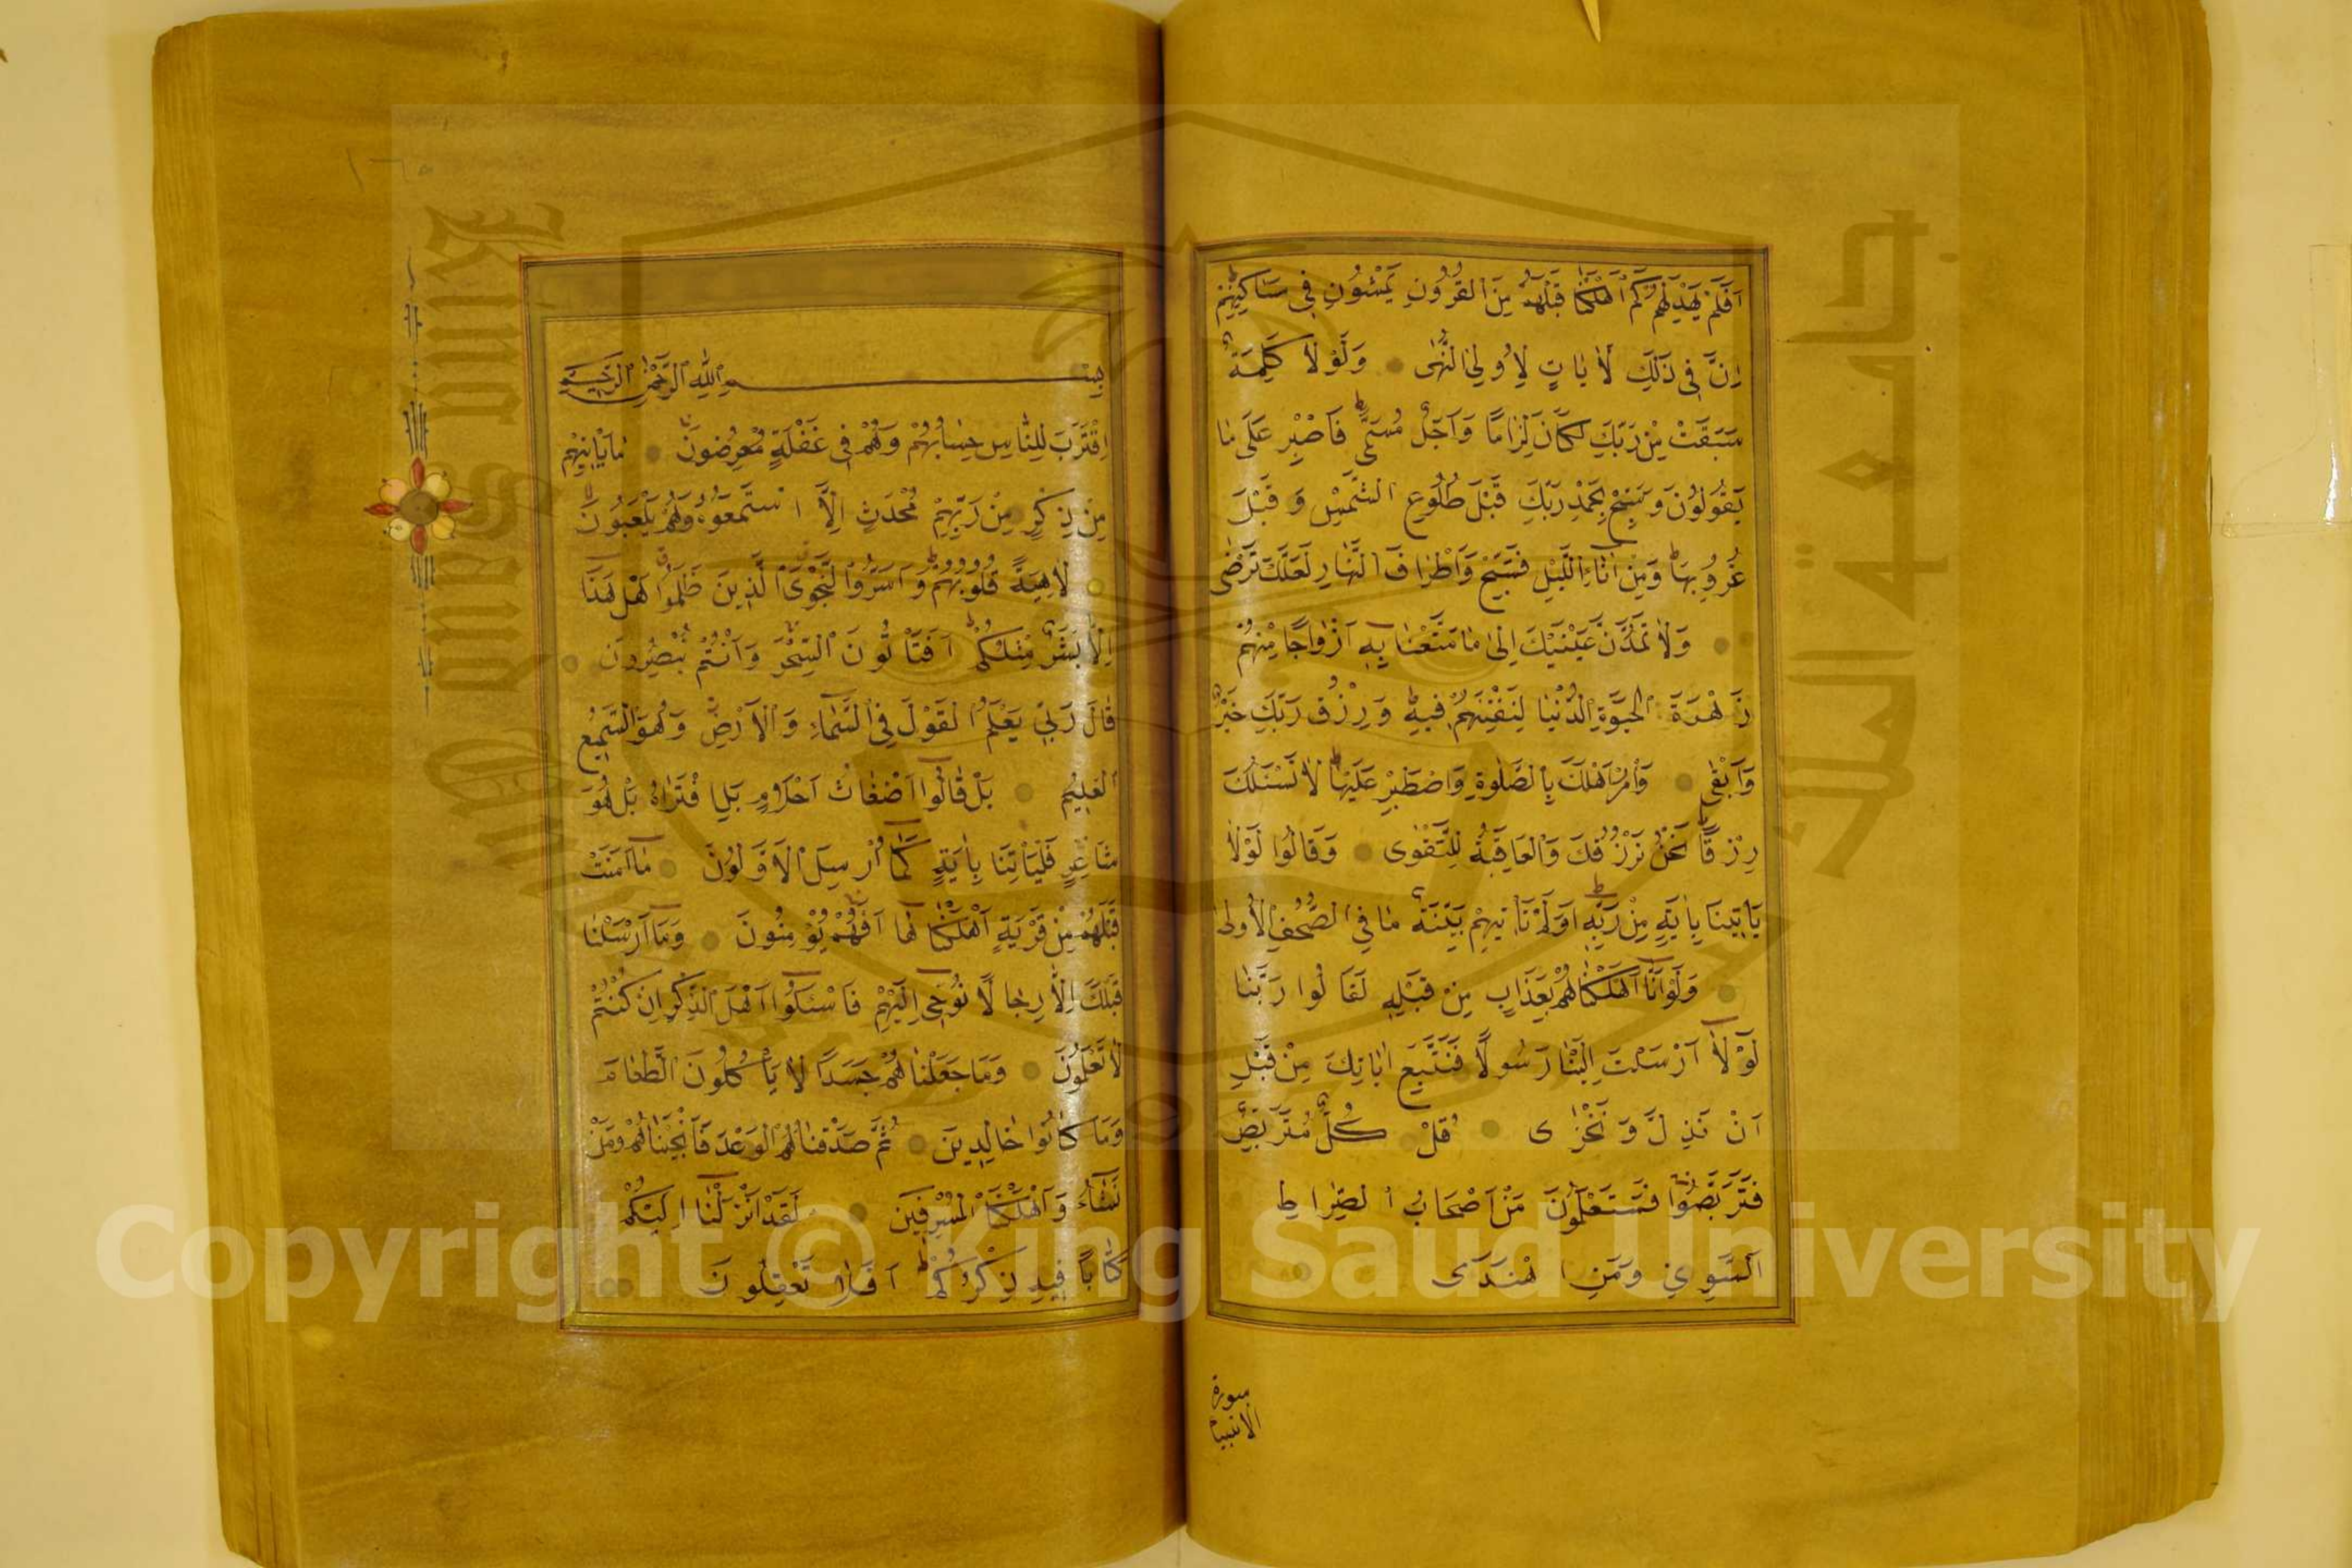 اَفَلَمْ يَهْدِ لَهُمْ كَمْ اَهْلَكْنَا قَبْلَهُمْ مِنَ الْقُرُونِ يَمْشُونَ فِي مَسَاكِنِهِمْ
اِنَّ فِي ذٰلِكَ لَاٰيَاتٍ لِاُولِي النُّهٰى وَلَوْلَا كَلِمَةٌ
سَبَقَتْ مِنْ رَبِّكَ لَكَانَ لِزَامًا وَاَجَلٌ مُسَمًّى فَاصْبِرْ عَلٰى مَا
يَقُولُونَ وَسَبِّحْ بِحَمْدِ رَبِّكَ قَبْلَ طُلُوعِ الشَّمْسِ وَقَبْلَ
غُرُوبِهَا وَمِنْ اٰنَاءِ اللَّيْلِ فَسَبِّحْ وَاَطْرَافَ النَّهَارِ لَعَلَّكَ تَرْضٰى
وَلَا تَمُدَّنَّ عَيْنَيْكَ اِلٰى مَا مَتَّعْنَا بِهِ اَزْوَاجًا مِنْهُمْ
زَهْرَةَ الْحَيٰوةِ الدُّنْيَا لِنَفْتِنَهُمْ فِيهِ وَرِزْقُ رَبِّكَ خَيْرٌ
وَاَبْقٰى وَاْمُرْ اَهْلَكَ بِالصَّلٰوةِ وَاصْطَبِرْ عَلَيْهَا لَا نَسْئَلُكَ
رِزْقًا نَحْنُ نَرْزُقُكَ وَالْعَاقِبَةُ لِلتَّقْوٰى وَقَالُوا لَوْلَا
يَاْتِينَا بِاٰيَةٍ مِنْ رَبِّهِ اَوَلَمْ تَاْتِهِمْ بَيِّنَةُ مَا فِي الصُّحُفِ الْاُولٰى
وَلَوْ اَنَّا اَهْلَكْنَاهُمْ بِعَذَابٍ مِنْ قَبْلِهِ لَقَالُوا رَبَّنَا
لَوْلَا اَرْسَلْتَ اِلَيْنَا رَسُولًا فَنَتَّبِعَ اٰيَاتِكَ مِنْ قَبْلِ
اَنْ نَذِلَّ وَنَخْزٰى قُلْ كُلٌّ مُتَرَبِّصٌ
فَتَرَبَّصُوا فَسَتَعْلَمُونَ مَنْ اَصْحَابُ الصِّرَاطِ
السَّوِيِّ وَمَنِ اهْتَدٰى
سورة
الانبياء
بِسْمِ اللّٰهِ الرَّحْمٰنِ الرَّحِيمِ
اِقْتَرَبَ لِلنَّاسِ حِسَابُهُمْ وَهُمْ فِي غَفْلَةٍ مُعْرِضُونَ مَا يَاْتِيهِمْ
مِنْ ذِكْرٍ مِنْ رَبِّهِمْ مُحْدَثٍ اِلَّا اسْتَمَعُوهُ وَهُمْ يَلْعَبُونَ
لَاهِيَةً قُلُوبُهُمْ وَاَسَرُّوا النَّجْوَى الَّذِينَ ظَلَمُوا هَلْ هٰذَا
اِلَّا بَشَرٌ مِثْلُكُمْ اَفَتَاْتُونَ السِّحْرَ وَاَنْتُمْ تُبْصِرُونَ
قَالَ رَبِّي يَعْلَمُ الْقَوْلَ فِي السَّمَاءِ وَالْاَرْضِ وَهُوَ السَّمِيعُ
الْعَلِيمُ بَلْ قَالُوا اَضْغَاثُ اَحْلَامٍ بَلِ افْتَرٰاهُ بَلْ هُوَ
شَاعِرٌ فَلْيَاْتِنَا بِاٰيَةٍ كَمَا اُرْسِلَ الْاَوَّلُونَ مَا اٰمَنَتْ
قَبْلَهُمْ مِنْ قَرْيَةٍ اَهْلَكْنَاهَا اَفَهُمْ يُؤْمِنُونَ وَمَا اَرْسَلْنَا
قَبْلَكَ اِلَّا رِجَالًا نُوحِي اِلَيْهِمْ فَاسْئَلُوا اَهْلَ الذِّكْرِ اِنْ كُنْتُمْ
لَا تَعْلَمُونَ وَمَا جَعَلْنَاهُمْ جَسَدًا لَا يَاْكُلُونَ الطَّعَامَ
وَمَا كَانُوا خَالِدِينَ ثُمَّ صَدَقْنَاهُمُ الْوَعْدَ فَاَنْجَيْنَاهُمْ وَمَنْ
نَشَاءُ وَاَهْلَكْنَا الْمُسْرِفِينَ لَقَدْ اَنْزَلْنَا اِلَيْكُمْ
كِتَابًا فِيهِ ذِكْرُكُمْ اَفَلَا تَعْقِلُونَ
King Saud University
جامعة الملك سعود
Copyright © King Saud University